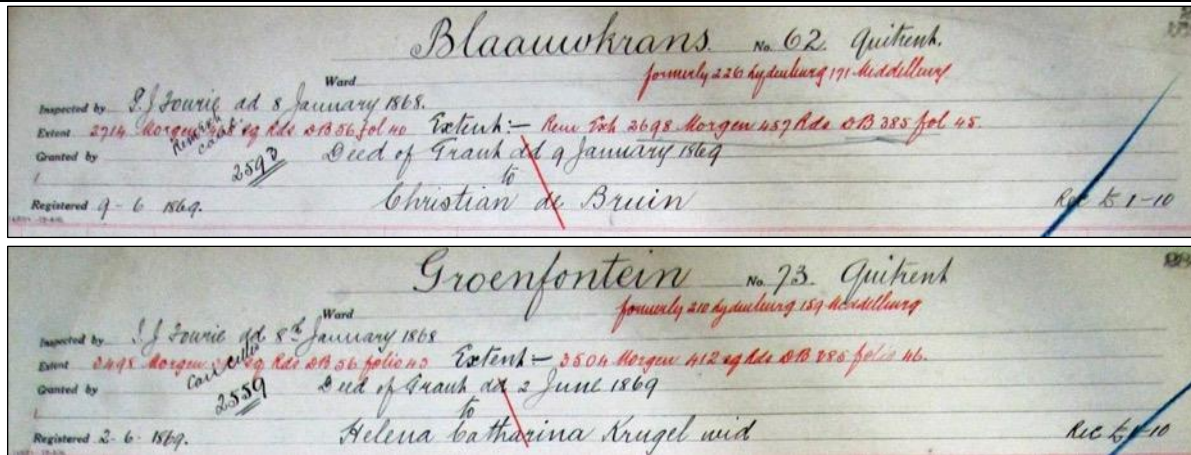 Blaauwkrans. No. 62. Quitrent.
formerly 226 Lydenburg 171 Middelburg
Ward
Inspected by S. J. Fourie dd 8 January 1868.
Extent 2714 Morgen 468 sq Rds DB 56 fol 40 Extent:— Rem Ext 2698 Morgen 457 Rds DB 385 fol 45.
Granted by Deed of Grant dd 9 January 1869
2593
to
Registered 9-6 1869. Christian de Bruin Rec to 1-10
Groenfontein No. 73. Quitrent
formerly 210 Lydenburg 159 Middelburg
Ward
Inspected by S. J. Fourie dd 8th January 1868
Extent 3498 Morgen sq Rds DB 56 folio 43 Extent:— 3504 Morgen 412 sq Rds DB 285 folio 46.
Cancelled
Granted by Deed of Grant dd 2 June 1869
2559
to
Registered 2-6-1869. Helena Catharina Krugel wid Rec to 1-10